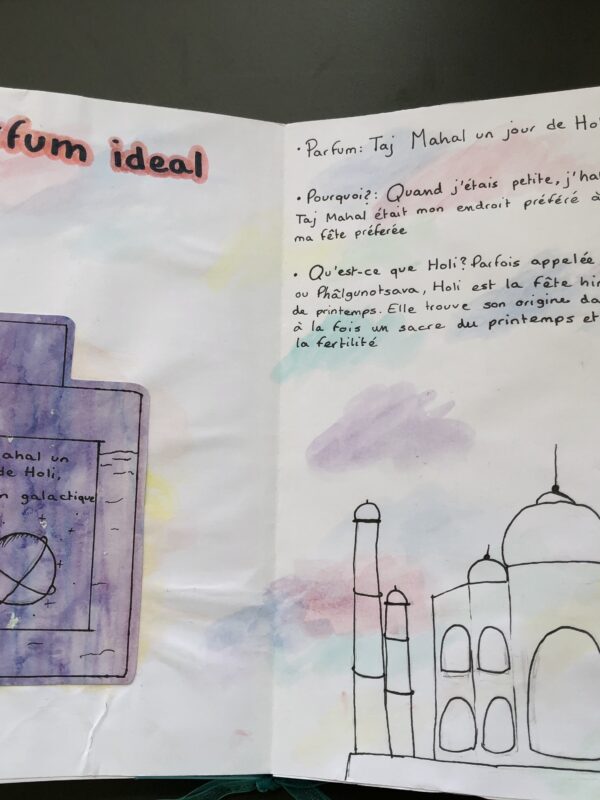 fum ideal
ahal un
de Holi,
n galactique
• Parfum: Taj Mahal un jour de Hol
• Pourquoi?: Quand j'étais petite, j'ha
Taj Mahal était mon endroit préféré à
ma fête préferée
• Qu'est-ce que Holi? Parfois appelée
ou Phâlgunotsava, Holi est la fête hin
de printemps. Elle trouve son origine da
à la fois un sacre du printemps et
la fertilité